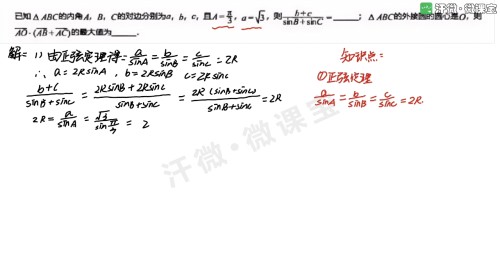 汗微·微课宝
已知△ABC的内角A,B,C的对边分别为a,b,c,且A=π/3,a=√3,则(b+c)/(sinB+sinC)=______;△ABC的外接圆的圆心是O,则
AO·(AB+AC)的最大值为______.
解=(1)由正弦定理得=a/sinA=b/sinB=c/sinC=2R
∴ a=2RsinA, b=2RsinB c=2RsinC
(b+c)/(sinB+sinC)=(2RsinB+2RsinC)/(sinB+sinC)=2R(sinB+sinC)/(sinB+sinC)=2R
2R=a/sinA=√3/sin(π/3)=2
知识点:
①正弦定理
a/sinA=b/sinB=c/sinC=2R.
汗微·微课宝